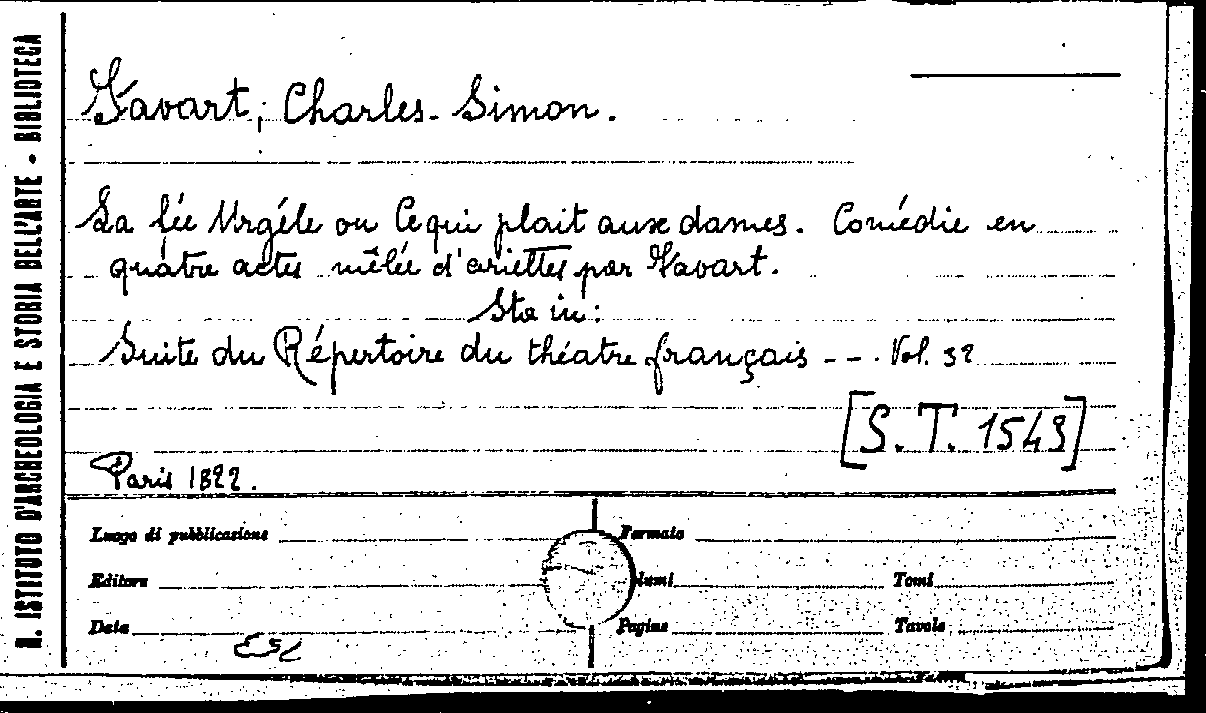 R. ISTITUTO D'ARCHEOLOGIA E STORIA DELL'ARTE - BIBLIOTECA
Favart, Charles-Simon.
La fée Urgéle ou Ce qui plait aux dames. Comédie en
quatre actes mêlée d'ariettes par Favart.
Sta in:
Suite du Répertoire du théatre français --. Vol. 32
[S. T. 1543]
Paris 1822.
Luogo di pubblicazione Formato
Editore lumi Tomi
Data Pagine Tavole